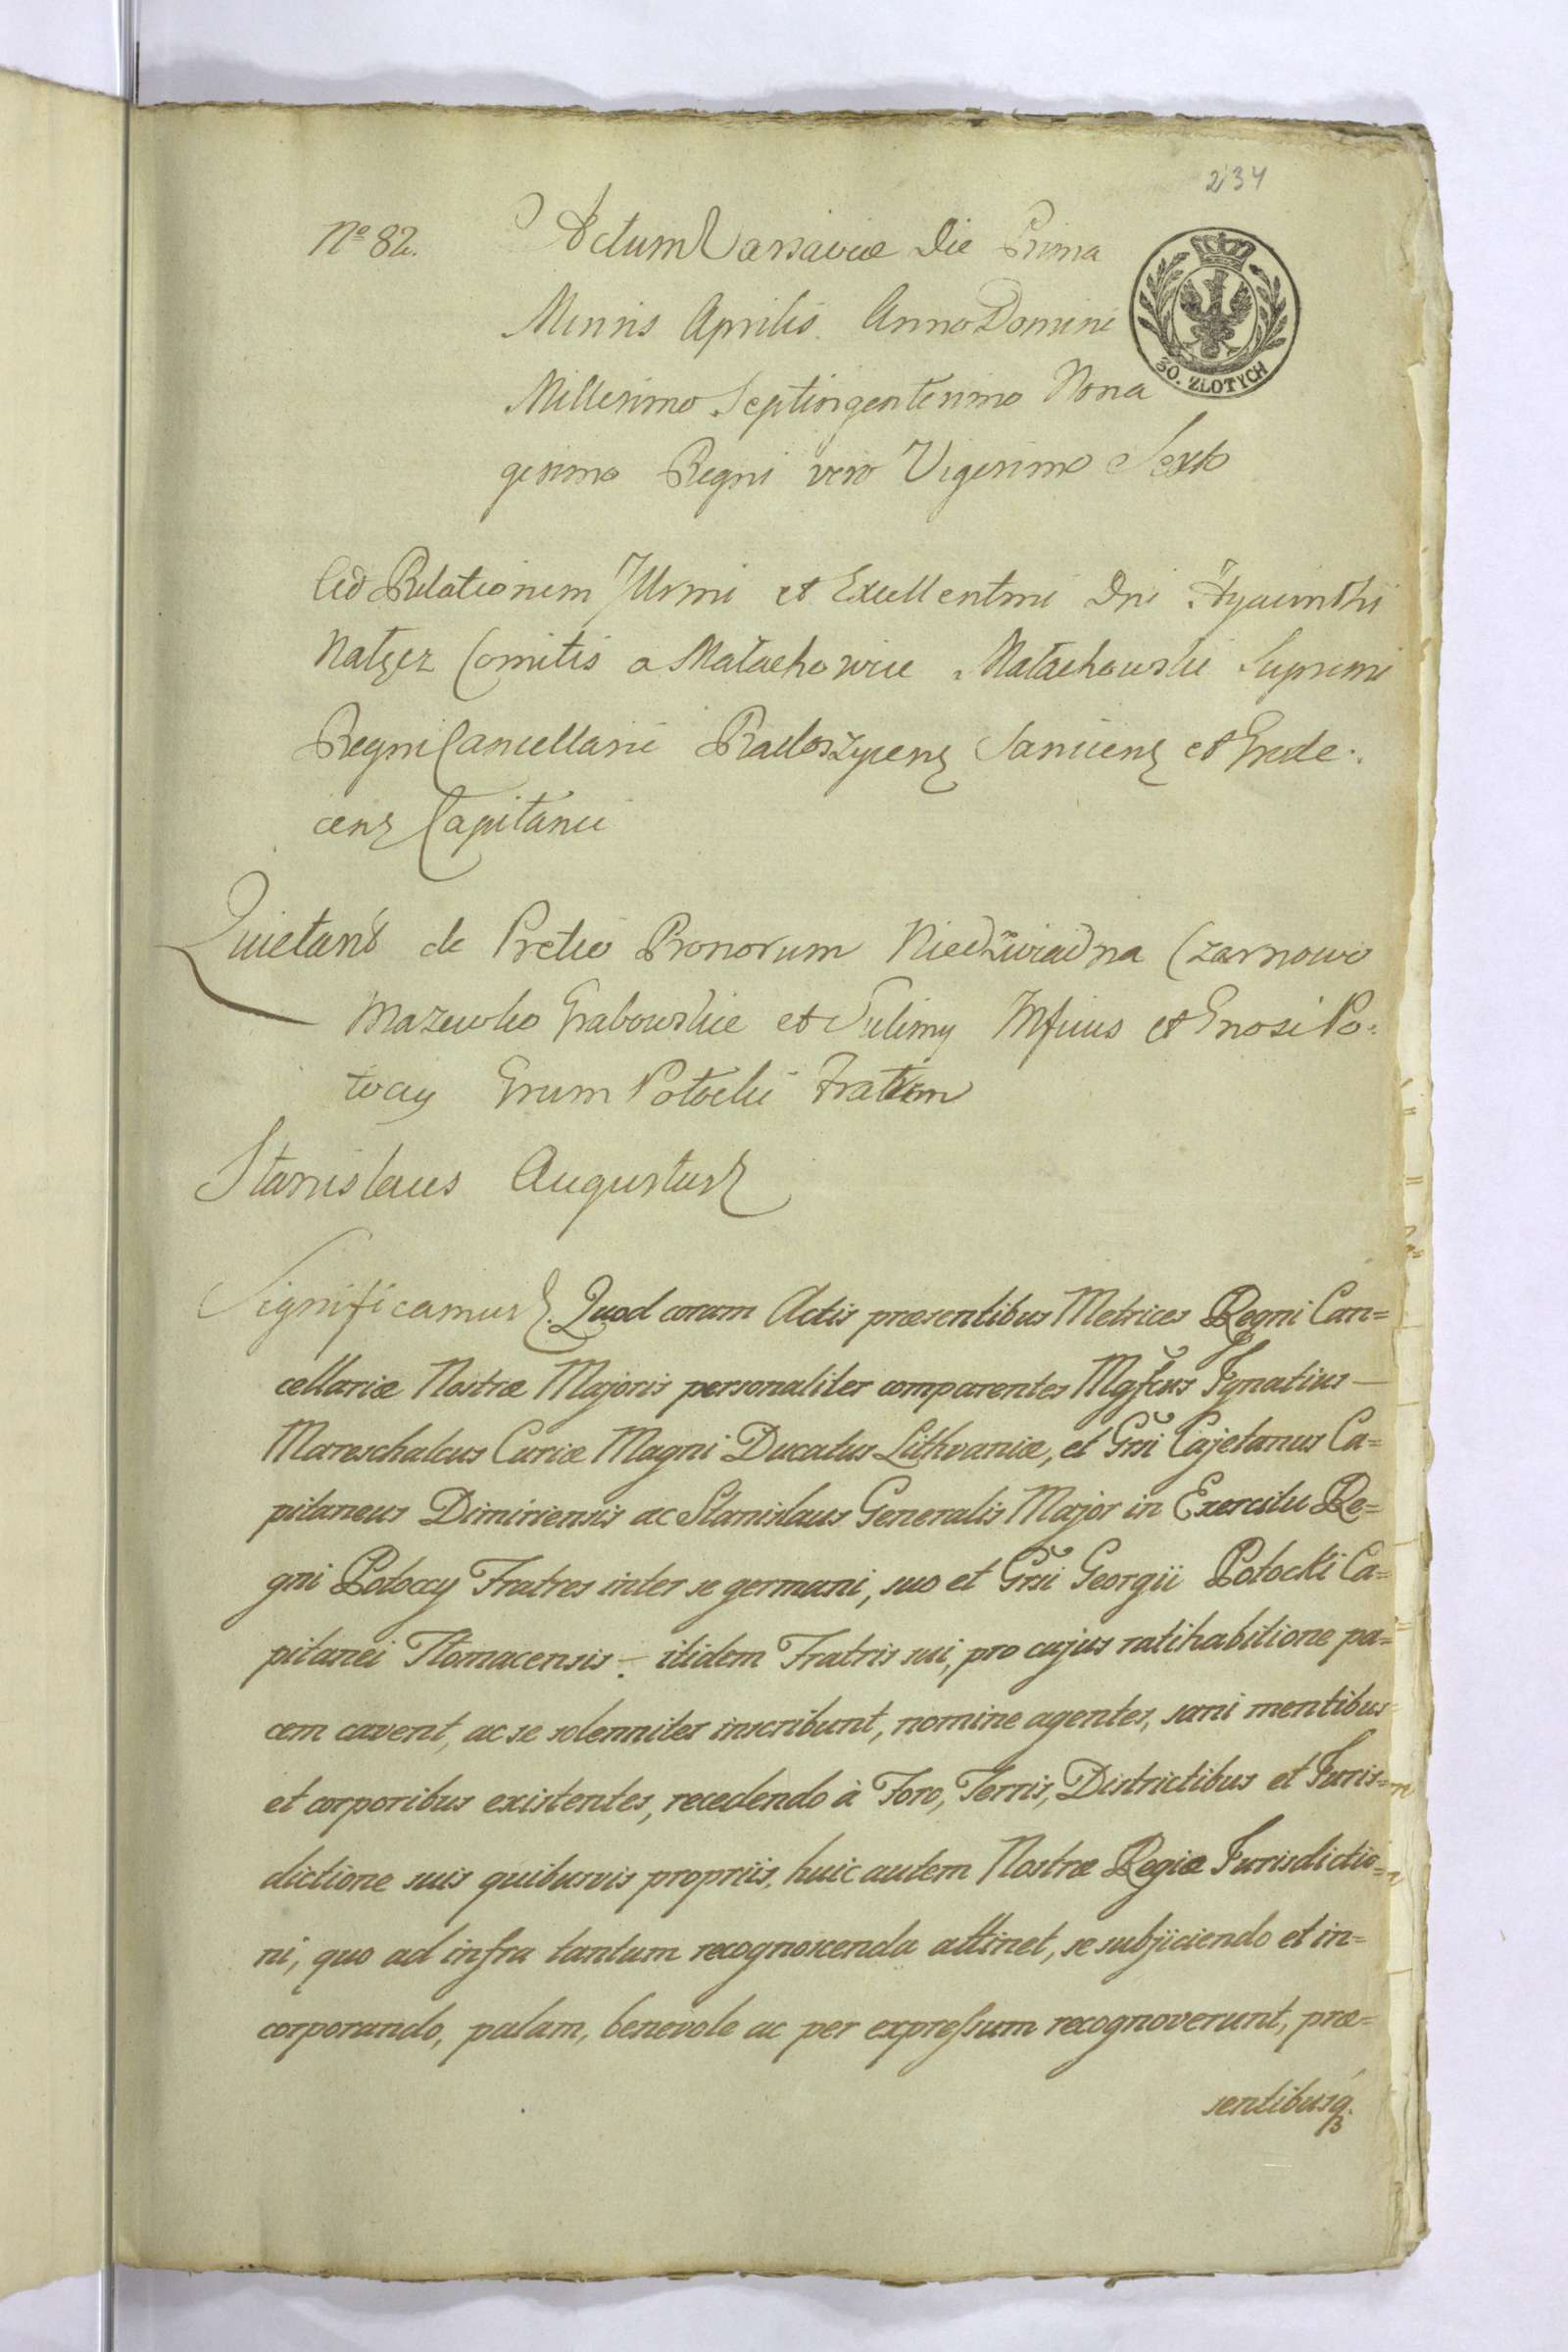 234
Nº 82.
Actum Varsaviæ Die Prima
Mensis Aprilis. Anno Domini
30. ZŁOTYCH
Millesimo Septingentesimo Nona
gesimo Regni vero Vigesimo Sexto
Ad Relationem Illrmi et Excellentmi Dni Hyacinthi
Nałęcz Comitis a Małachowice Małachowski Supremi
Regni Cancellarii Radoszycens Saniecens et Grode:
cens Capitanei
Quietans de Pretio Bonorum Niedźwiadna Czarnowo
Mazewko Grabowskie et Sulimy Mfcus et Gnosi Po:
toccy Grum Potocki Fratrem
Stanislaus Augustus
Significamus. Quod coram Actis præsentibus Metrices Regni Can=
cellariæ Nostræ Majoris personaliter comparentes Mgfcus Ignatius —
Mareschalcus Curiæ Magni Ducatus Lithvaniæ, et Grsi Cajetanus Ca=
pitaneus Dimiriensis ac Stanislaus Generalis Major in Exercitu Re=
gni Potoccy Fratres inter se germani, suo et Grsi Georgii Potocki Ca=
pitanei Tłomacensis ÷ itidem Fratris sui, pro cujus ratihabitione pa=
cem cavent, ac se solenniter inscribunt, nomine agentes, sani mentibus
et corporibus existentes, recedendo à Foro, Terris, Districtibus et Juris=
dictione suis quibusvis propriis, huic autem Nostræ Regiæ Jurisdictio=
ni, quo ad infra tantum recognoscenda attinet, se subjiciendo et in=
corporando, palam, benevole ac per expreſsum recognoverunt, præ=
sentibusq